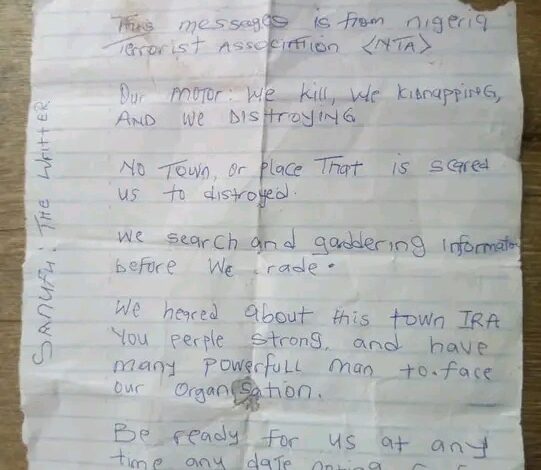 This messages is from nigeria
Terrorist Association <NTA>
Our motor: We kill, We Kidnapping,
AND We DisTroyiNG
No Town, or place That is scared
us to distroyed.
We search and gaddering informato
before We rade.
We heared about this town IRA
You perple strong, and have
many powerfull man to face
our Organisation.
Be ready for us at any
time any date
SANUFU: THE WRITTER